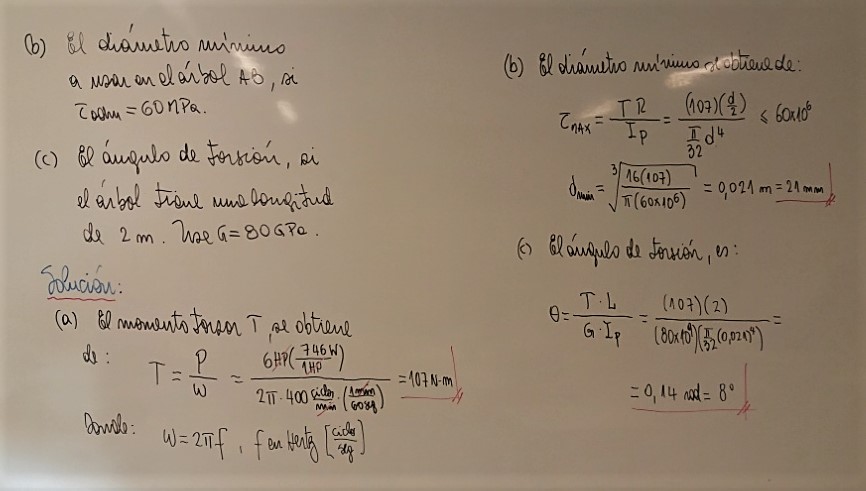 (b) El diámetro mínimo
a usar en el árbol AB, si
τadm = 60 MPa.
(c) El ángulo de torsión, si
el árbol tiene una longitud
de 2 m. Use G = 80 GPa.
Solución:
(a) El momento torsor T, se obtiene
de: T = P/W = 6HP(746W/1HP) / 2π·400 ciclos/min·(1min/60seg) = 107 N-m
Donde: W = 2πf, f en Hertz [ciclos/seg]
(b) El diámetro mínimo se obtiene de:
τMAX = TR/IP = (107)(d/2) / π/32 d⁴ ≤ 60x10⁶
dmín = ∛(16(107)/π(60x10⁶)) = 0,021 m = 21 mm
(c) El ángulo de torsión, es:
θ = T·L/G·IP = (107)(2)/(80x10⁹)(π/32(0,021)⁴) =
= 0,14 rad = 8°